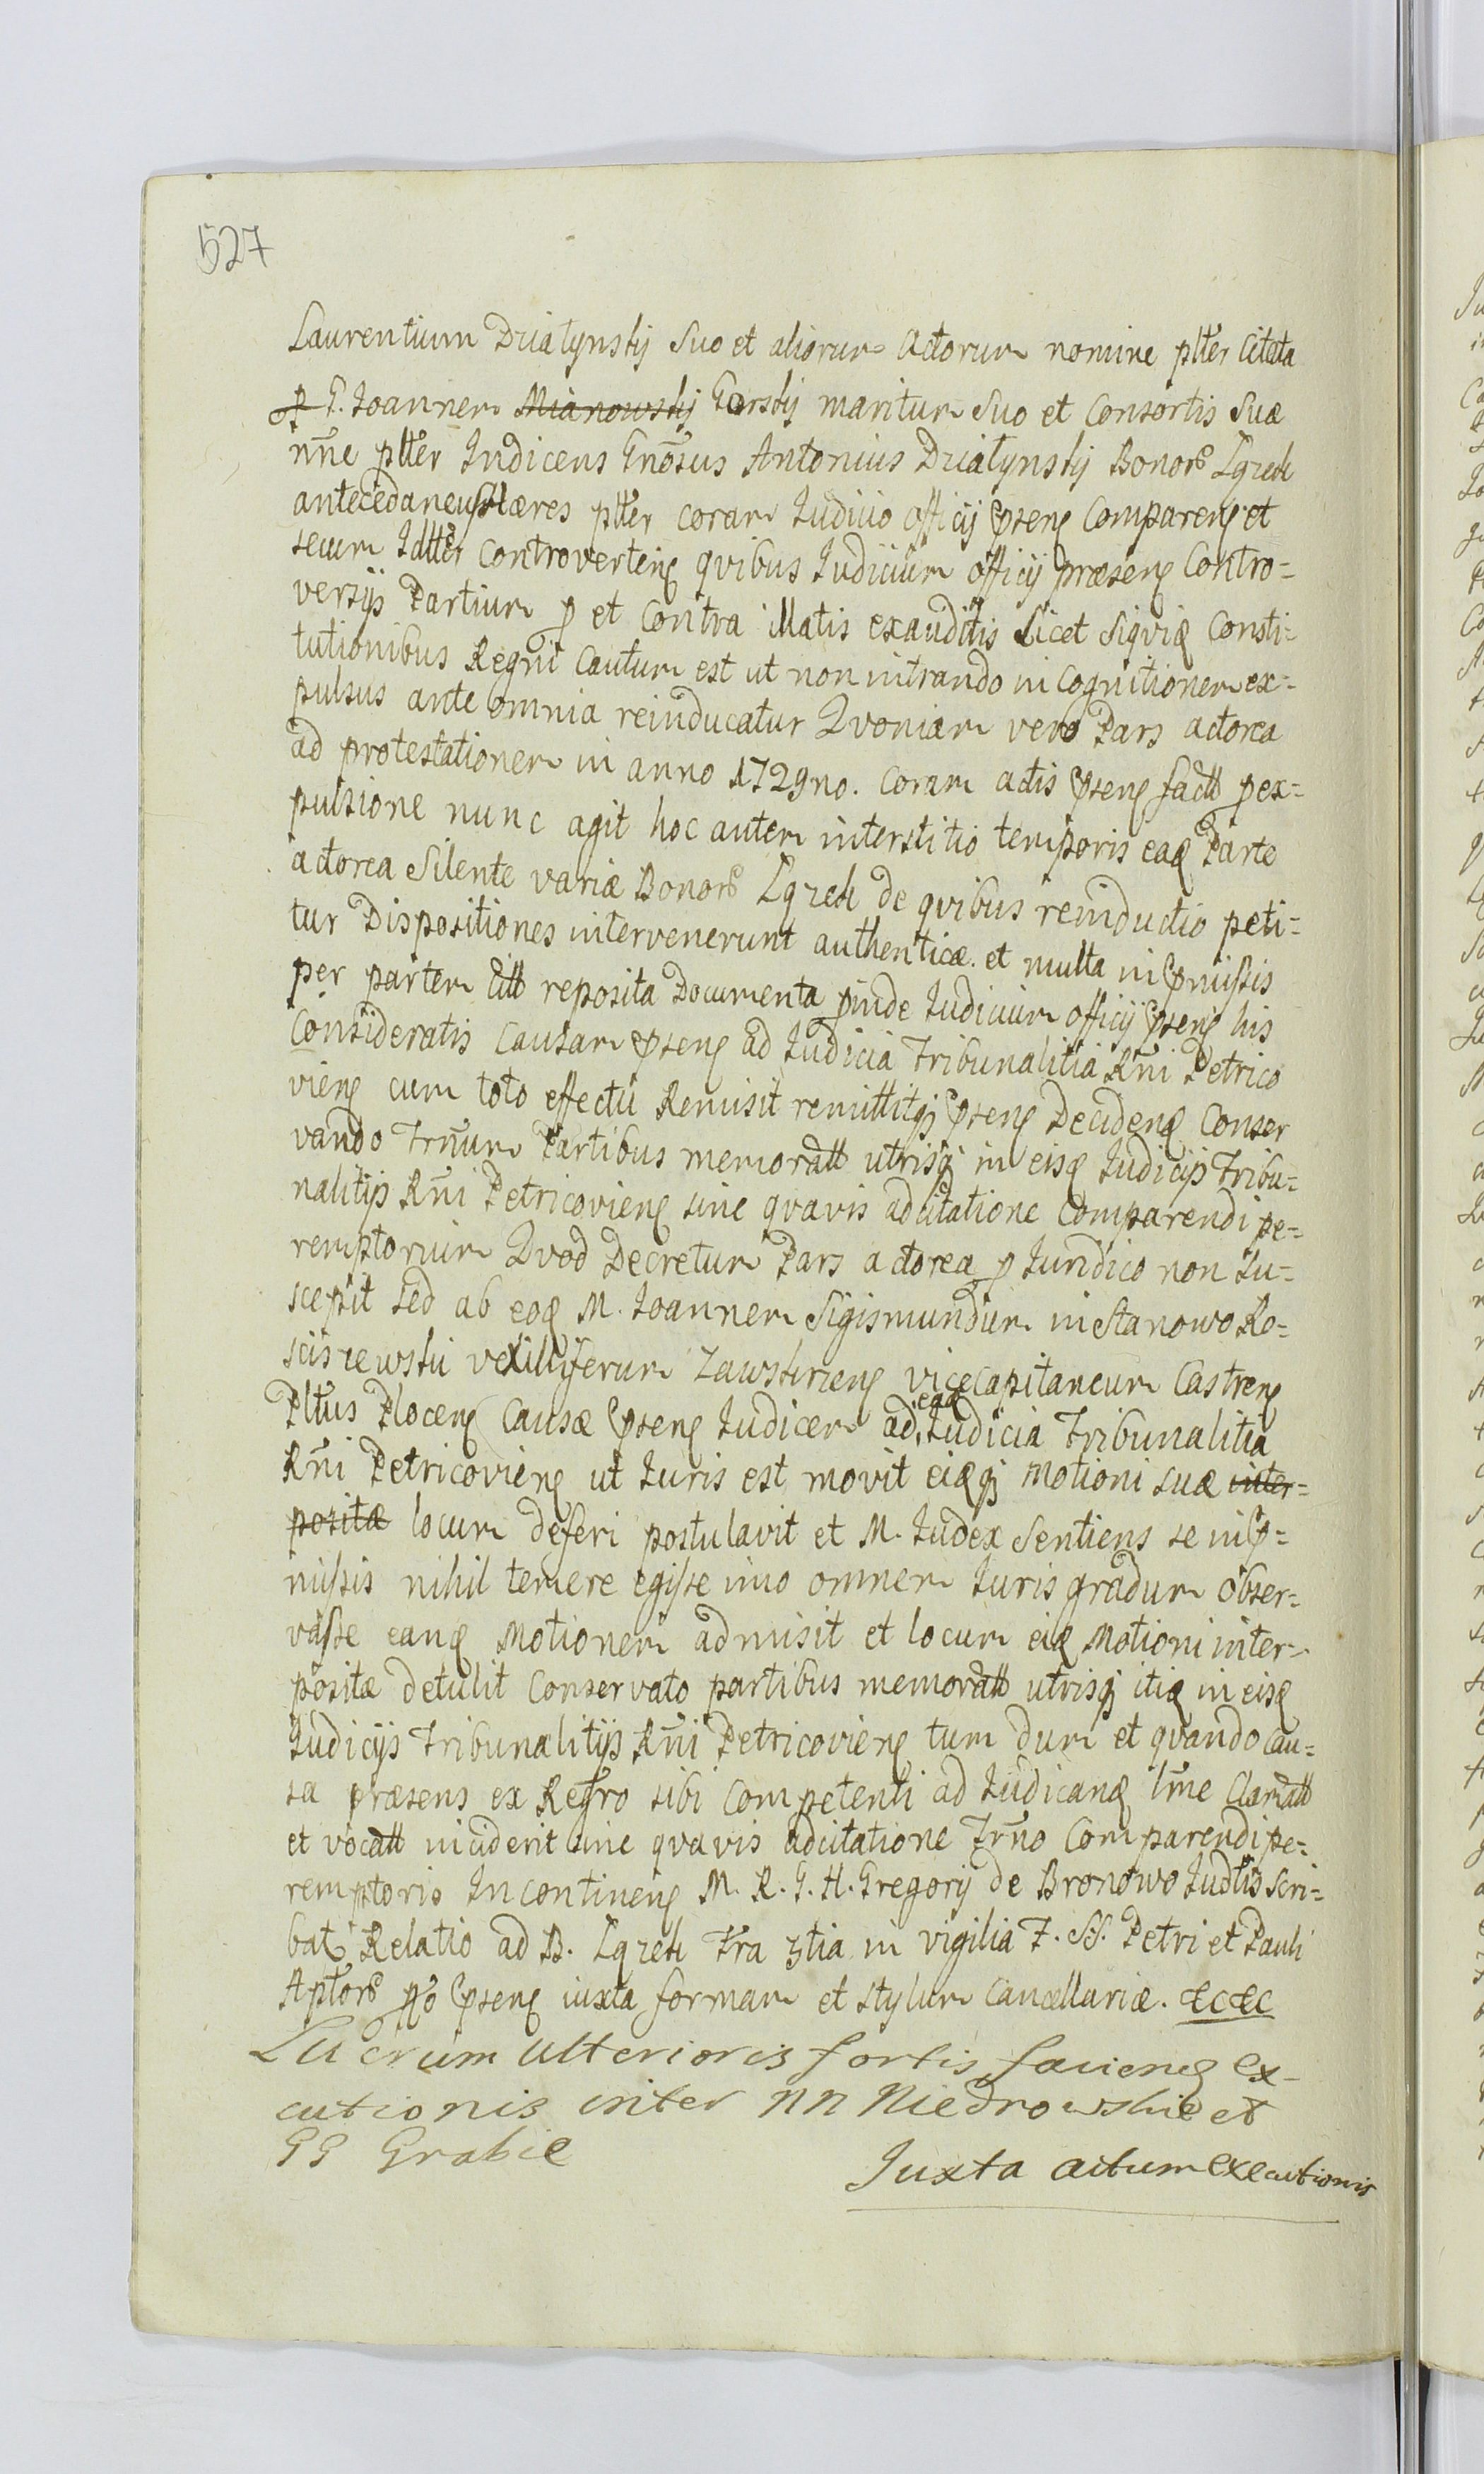 527
Laurentium Działynskij Suo et aliorum Actorum nomine plter Citata
p G. Joannem Mianowskij Gorskij maritum Suo et Consortis Suæ
nne plter Judicens Gnosus Antonius Działynskij Bonor Zgzech
antecedaneus Hæres plter coram Judicio officij pseng Compareng et
secum Jdlter Controverteng qvibus Judicium officij præseng Contro=
versijs Partium p et Contra illatis exauditis Licet Siqviq Consti=
tutionibus Regni Cautum est ut non intrando in Cognitionem ex=
pulsus ante omnia reinducatur Qvoniam vero Pars actorea
ad protestationem in anno 1729no. Coram actis pseng fact p ex=
pulsione nunc agit hoc autem interstitio temporis eaq Parte
actorea Silente variæ Bonor Zgzech de qvibus reinductio peti=
tur Dispositiones intervenerunt authenticæ. et multa in pmissis
per partem Citt reposita Documenta pinde Judicium officij pseng his
Consideratis Causam pseng ad Judicia Tribunalitia Rni Petrico
vieng cum toto effectu Remisit remittitqj pseng Decidenq Conser
vando Trnum Partibus memoratt utrisqj in eisq Judicijs Tribu=
nalitijs Rni Petricovieng sine qvavis adcitatione Comparendi pe=
remptorium Qvod Decretum Pars actorea p Juridico non Su=
scepit sed ab eoq M. Joannem Sigismundum in Stanowo Ro=
sciszewski vexilliferum Zawskrzeng vicecapitaneum Castreng
Pltus Ploceng Causæ pseng Judicem ad eaq Judicia Tribunalitia
Rni Petricovieng ut Juris est movit eiqqj Motioni suæ inter=
positæ locum deferi postulavit et M. Judex Sentiens se in p=
missis nihil temere egisse imo omnem Juris gradum obser=
vasse eanq Motionem admisit et locum eiq Motioni inter=
positæ detulit Conservato partibus memoratt utrisqj itiq in eisq
Judicijs Tribunalitijs Rni Petricovieng tum dum et qvando Cau=
sa præsens ex Regro sibi Competenti ad Judicanq lme Clamatt
et vocatt inciderit sine qvavis adcitatione Trno Comparendi pe=
remptorio In contineng M. R. G. H. Gregorij de Bronowo Judtis Scri=
bat Relatio ad B. Zgzech Fra 3tia in vigilia F. SS. Petri et Pauli
Aptor po pseng iuxta formam et stylum Cancellariæ. &c&c
Lucrum Ulterioris fortis facieng Ex-
cutionis inter NN Niedrowskie et
GG Grabie
Juxta actum Executionis